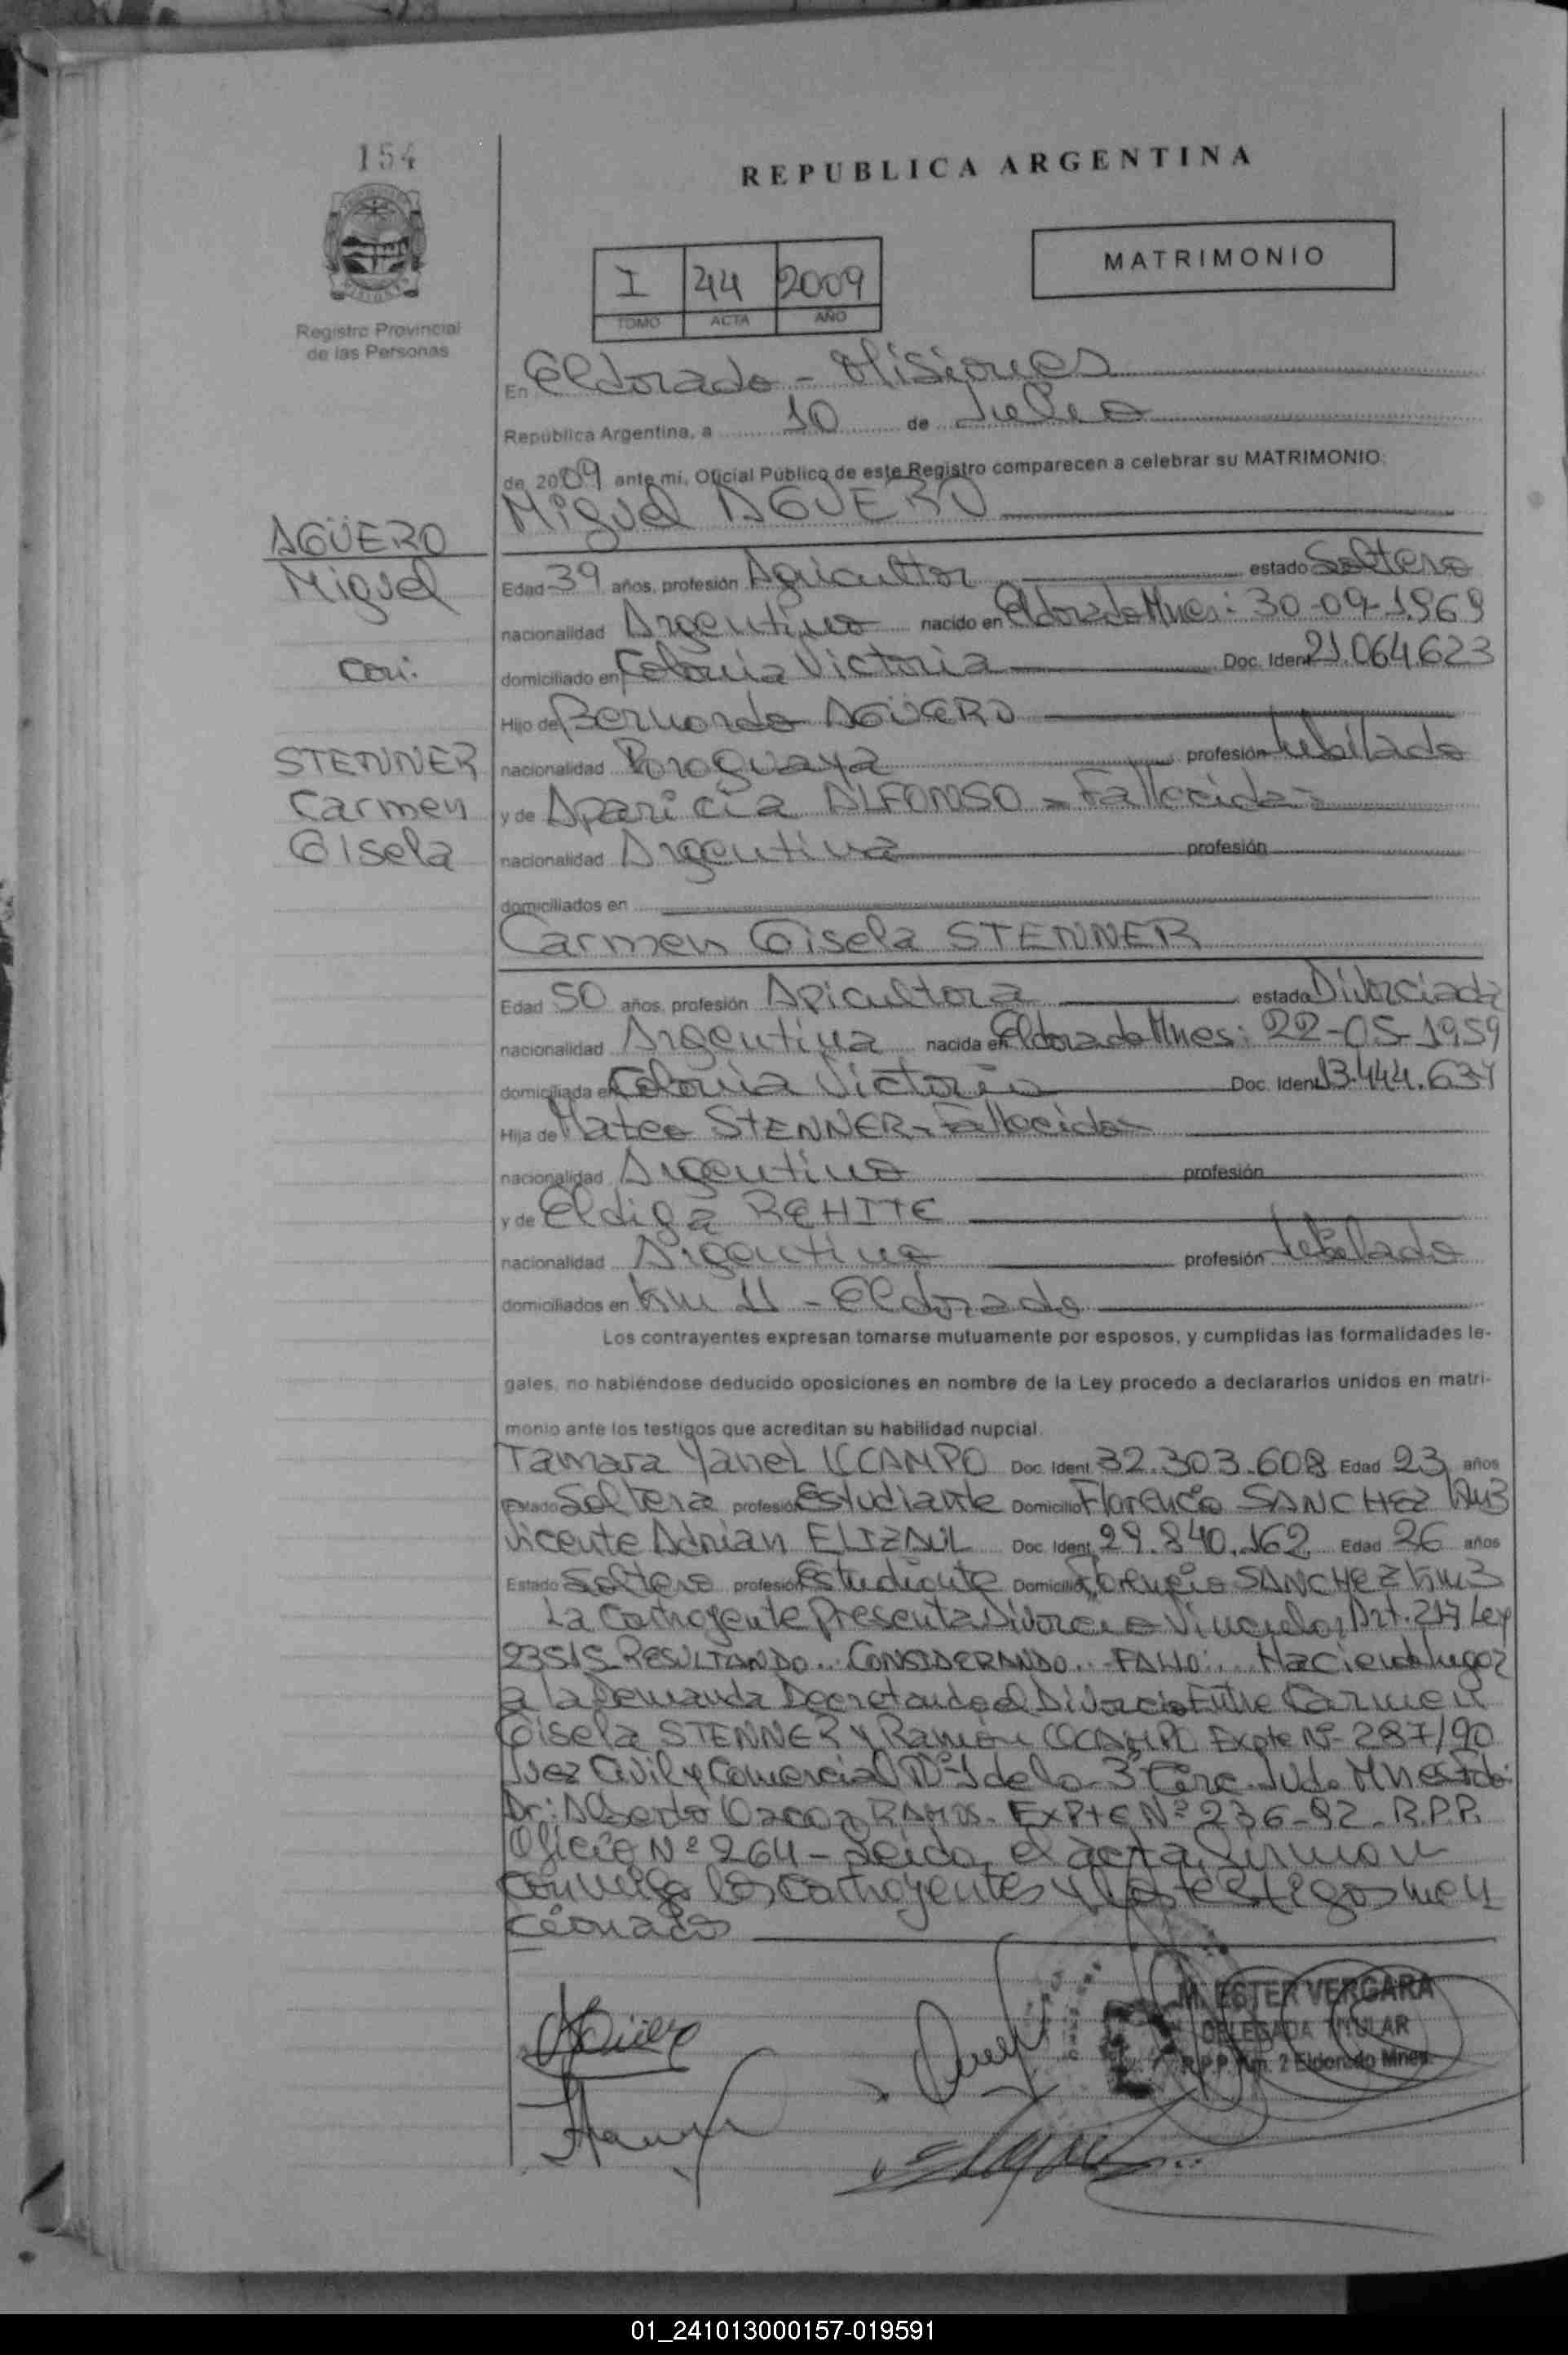 154
REPUBLICA ARGENTINA
MATRIMONIO
I 44 2009
TOMO ACTA AÑO
Registro Provincial
de las Personas
En Eldorado - Misiones
República Argentina, a 10 de Julio
de 2009 ante mi, Oficial Público de este Registro comparecen a celebrar su MATRIMONIO:
Miguel AGÜERO
AGÜERO
Miguel
con:
STENNER
Carmen
Gisela
Edad 39 años, profesión Agricultor estado Soltero
nacionalidad Argentino nacido en Eldorado Mnes: 30-09-1969
domiciliado en Colonia Victoria Doc. Ident 21.064.623
Hijo de Bernardo AGÜERO
nacionalidad Paraguaya profesión Jubilado
y de Aparicia ALFONSO - Fallecida -
nacionalidad Argentina profesión
domiciliados en
Carmen Gisela STENNER
Edad 50 años, profesión Apicultora estado Divorciada
nacionalidad Argentina nacida en Eldorado Mnes: 22-05-1959
domiciliada en Colonia Victoria Doc. Ident 13.444.634
Hija de Mateo STENNER - Fallecido -
nacionalidad Argentino profesión
y de
nacionalidad Argentina profesión Jubilado
domiciliados en Km 11 - Eldorado
Los contrayentes expresan tomarse mutuamente por esposos, y cumplidas las formalidades le-
gales, no habiéndose deducido oposiciones en nombre de la Ley procedo a declararlos unidos en matri-
monio ante los testigos que acreditan su habilidad nupcial.
Tamara Yanel Doc. Ident 32.303.608 Edad 23 años
Estado Soltera profesión Estudiante Domicilio Florencio SANCHEZ Km3
Vicente Adrian Doc. Ident 29.840.162 Edad 26 años
Estado Soltero profesión Estudiante Domicilio Florencio SANCHEZ Km3
La contrayente Presenta Divorcio Vincular, Art. 217 Ley
23515 RESULTANDO.. CONSIDERANDO.. FALLO: Haciendo lugar
a la Demanda Decretando el Divorcio Entre Carmen
Gisela STENNER y Ramón OCAMPO Expte Nº 287/90
Juez Civil y Comercial Nº 1 de la 3º Circ. Jud. Mnes Fdo:
Dr: Alberto RAMOS - EXPte Nº 236-92 - R.P.P.
Oficio Nº 264 - Leida el acta, firman
conmigo los contrayentes y los testigos men
cionados
M. ESTER VERGARA
DELEGADA TITULAR
R.P.P. Km. 2 Eldorado Mnes.
01_241013000157-019591